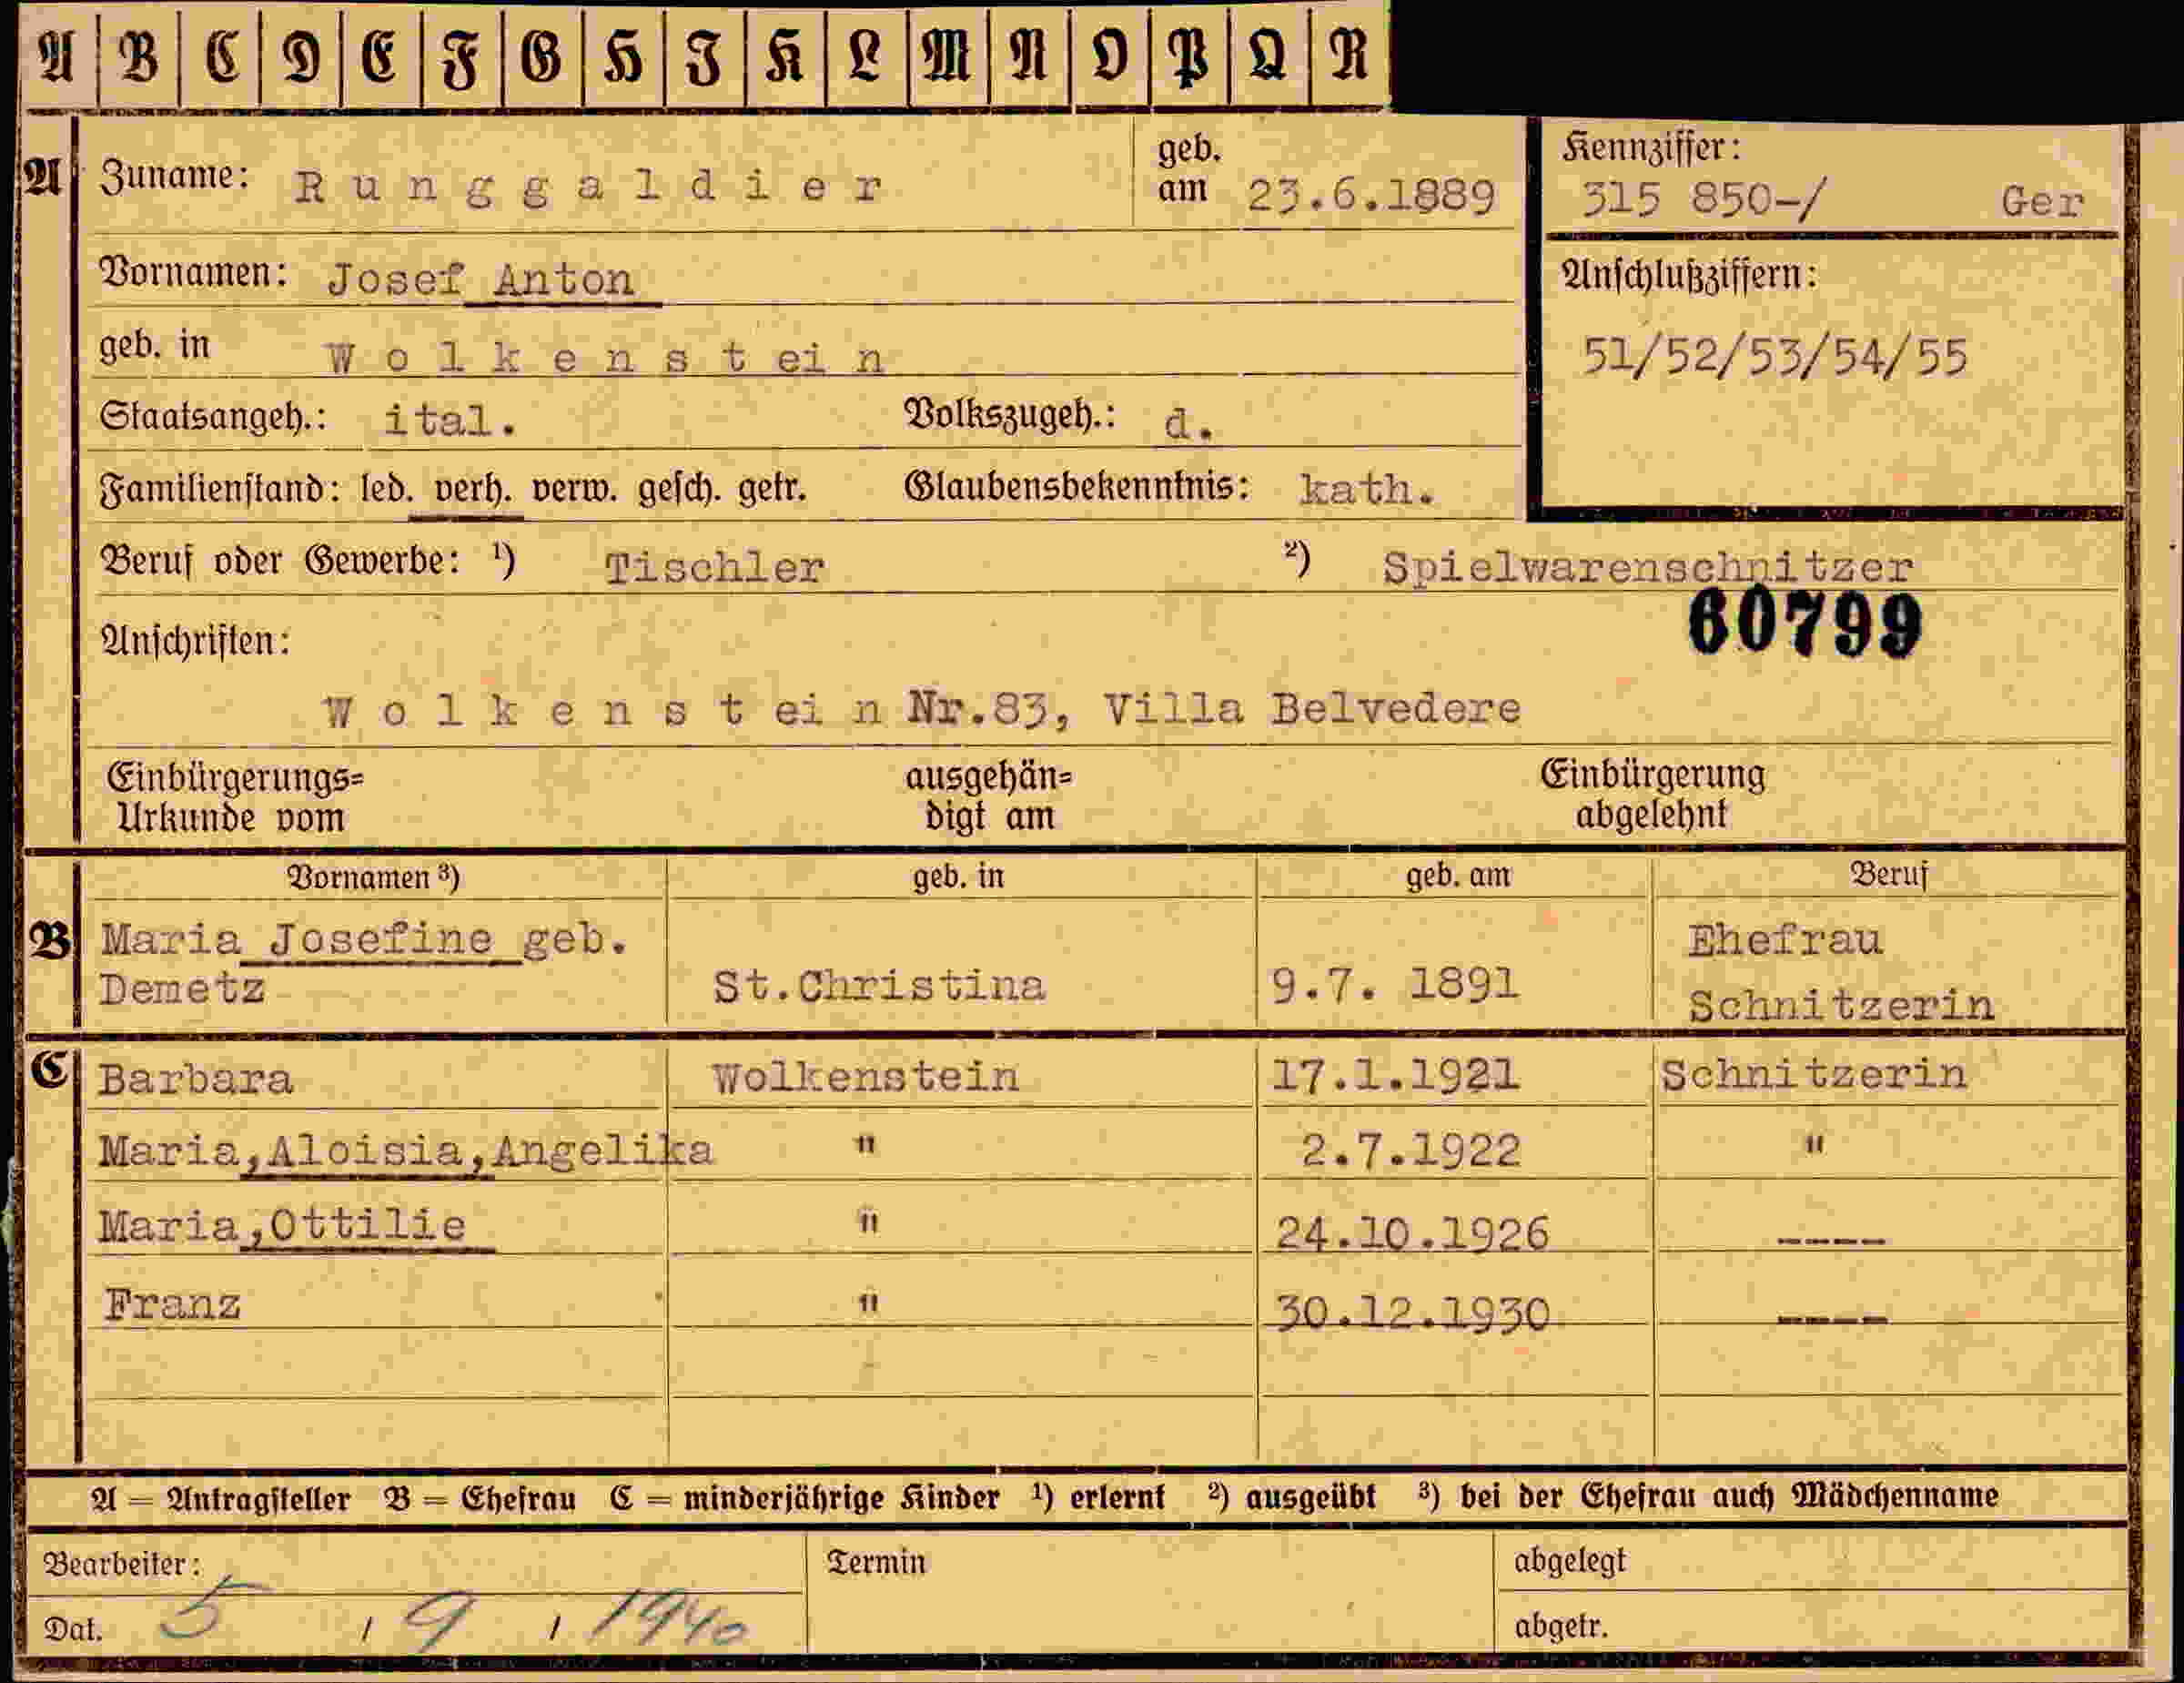 A B C D E F G H I K L M N O P Q R
A Zuname: R u n g g a l d i e r geb. am 23.6.1889
Kennziffer:
315 850-/ Ger
Vornamen: Josef Anton
Anschlußziffern:
geb. in W o l k e n s t ei n
51/52/53/54/55
Staatsangeh.: ital. Volkszugeh.: d.
Familienstand: led. verh. verw. gesch. getr. Glaubensbekenntnis: kath.
Beruf oder Gewerbe: ¹) Tischler ²) Spielwarenschnitzer
60799
Anschriften:
W o l k e n s t ei n Nr.83, Villa Belvedere
Einbürgerungs= ausgehän= Einbürgerung
Urkunde vom digt am abgelehnt
Vornamen ³) geb. in geb. am Beruf
B Maria Josefine geb. Ehefrau
Demetz St.Christina 9.7. 1891 Schnitzerin
C Barbara Wolkenstein 17.1.1921 Schnitzerin
Maria,Aloisia,Angelika " 2.7.1922 "
Maria,Ottilie " 24.10.1926 ----
Franz " 30.12.1930 ----
A = Antragsteller B = Ehefrau C = minderjährige Kinder ¹) erlernt ²) ausgeübt ³) bei der Ehefrau auch Mädchenname
Bearbeiter: Termin abgelegt
Dat. 5 / 9 / 1940 abgetr.